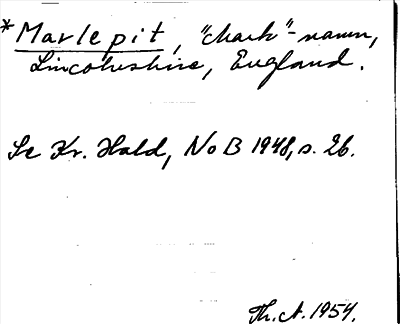 *Marlepit, "mark"-namn,
Lincolnshire, England.
Se Kr. Hald, NoB 1948, s. 26.
Th. A. 1954.